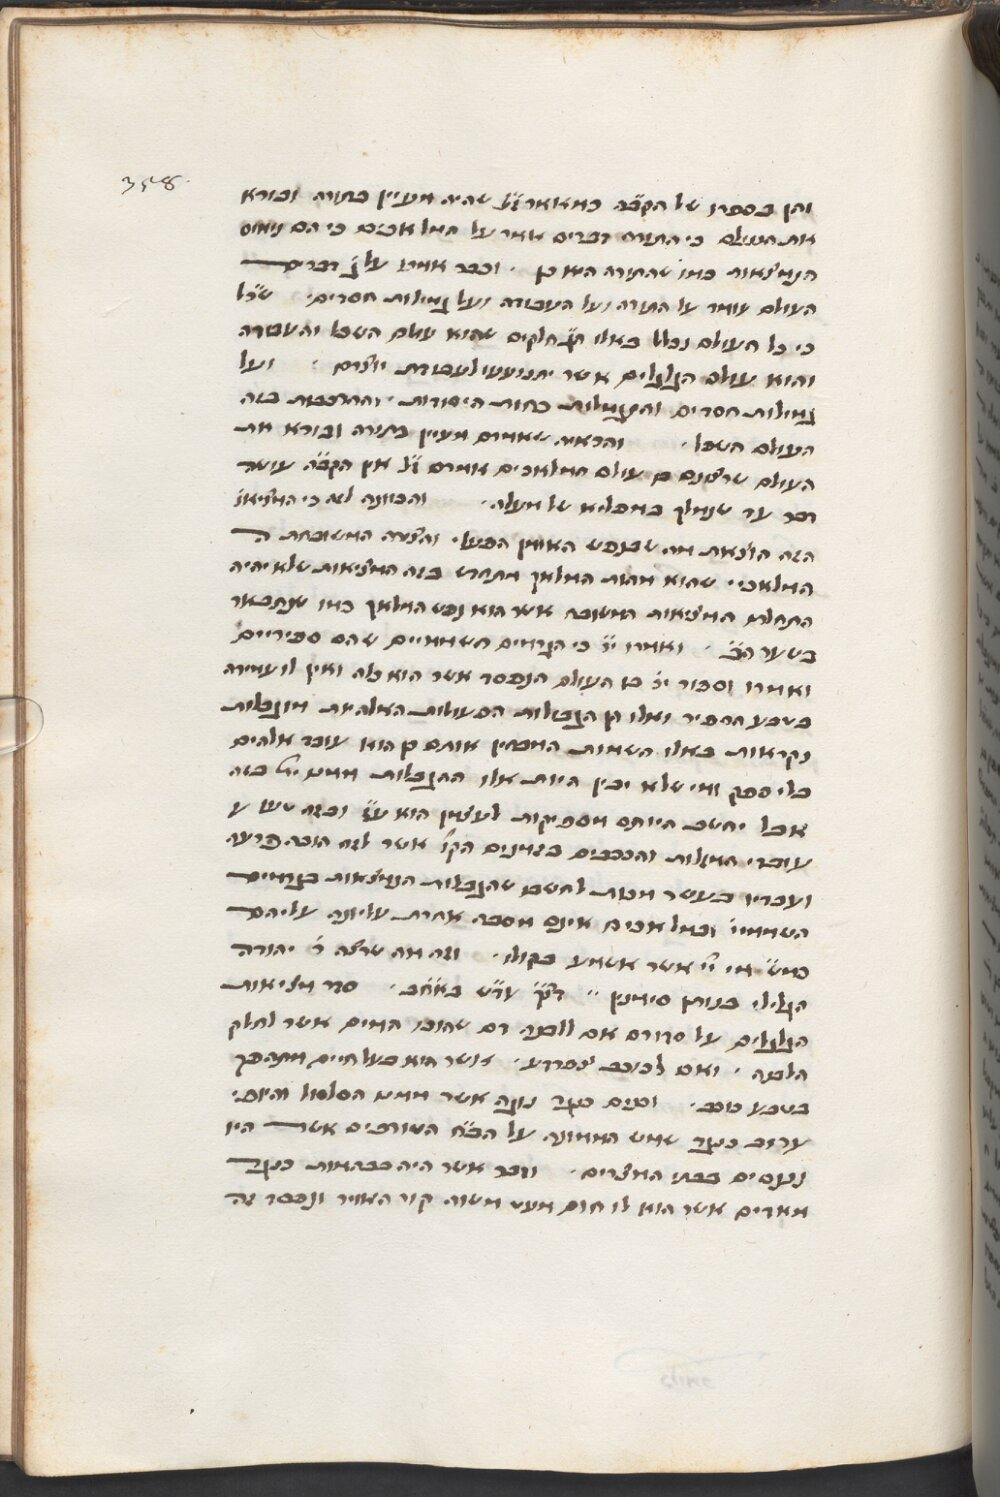 358
והן בספרו של הקב״ה כמאמר ז״ל שהיה מעיין בתורה ובורא
את העולם כי התורה דברים אמר על המלאכים כי הם
הנמצאות כמו שהתורה היא כן · וכבר אמרו על ג׳ דברים
העולם עומד על התורה ועל העבודה ועל גמילות חסדים·
כי כל העולם נכלל באלו הג׳ חלקים שהוא עולם השכל והעבודה
והוא עולם הגלגלים אשר יתנועעו לעבודת יוצרם · ועל
גמילות חסדים והתגמלות כחות היסודות · והתרכבות בזה
העולם השפל · והראיה שאמרם מעיין בתורה ובורא את
העולם שרצונם בו עולם המלאכים אומרם ז״ל אין הקב״ה עושה
דבר עד שנמלך בפמליא של מעלה · והכוונה לזה כי המציאו׳
הזה הוצאת מה שבנפש האומן הפועל והצורה המשובחת ה
המלאכיי שהוא מהות המלאך מתחדש בזה המציאות שלא יהיה
התחלת המציאות המשובח אשר הוא נפש המלאך כמו שנתבאר
בשער הב׳ · ואמרו י״ כי הגרמים השממיים שהם ספיריים
ואמרו וספור י״ בו העולם הנפסד אשר הוא כלה ואין לו עמידה
בטבע הספיר ואלו הן הגבולות הפעולות האלהיות מוגבלות
נקראות באלו השמות המבחין אותם בו הוא עובד אלהים
בלי ספק ומי שלא יבין היות אלו ההגבלות ממנו ית׳ בזה
אבל יחשב היותם מספיקות לעצמן הוא ע״ז ובזה טעו ע
עובדי המזלות והככבים בזמנים הקו׳ אשר לזה הוכה פרעה
ועבדיו בעשר מכות לחשבו שהגבלות הנמצאות בגרמים
השממיי׳ ובמלאכים אינם מסבה אחרת עליונה עליהם
כמש״ מי יי׳ אשר אשמע בקולו · וזה מה שרצה ר׳ יהודה
הגלילי בנותן סימנין ·· דצ״ך עד״ש באח״ב · סדר מציאות
הגלגלים על סדורם אם ללבנה דם שהוכו המים אשר לחלק
הלבנה · ואם לכוכב צפרדע · אשר הוא בעל חיים מתהפך
בטבע כוכב · וכנים כנגד נוגה אשר ממנו הסלסול והיופי·
ערוב כנגד שמש הממונה על הב״ח הטורפים אשר היו
נכנסים בבתי המצרים · ודבר אשר היה בבהמות כנגד
מאדים אשר הוא לו חום מעט משוה קור האויר ונפסד זה